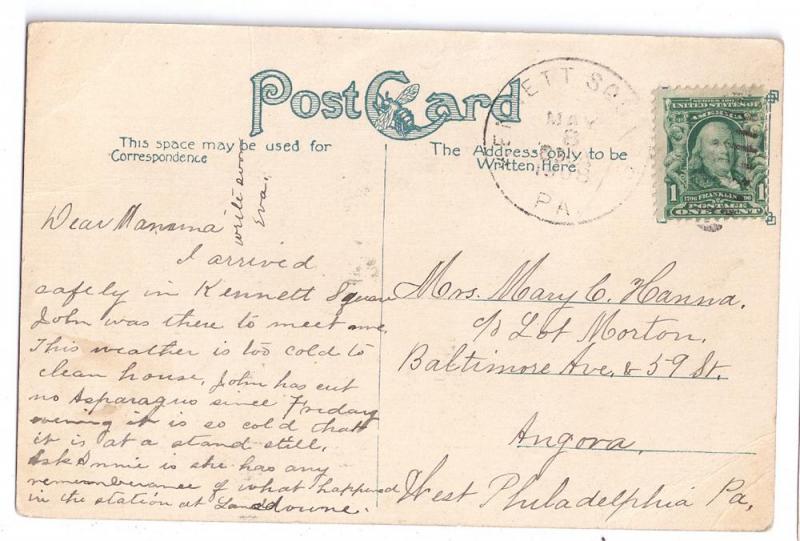 Post Card
This space may be used for
Correspondence
The Address only to be
Written Here
KENNETT SQUARE
MAY
8
1908
PA.
SERIES 1902
UNITED STATES OF
AMERICA
1706 FRANKLIN 90
1 POSTAGE 1
ONE CENT
write soon
Eva.
Dear Mamma
I arrived
safely in Kennett Square
John was there to meet me.
This weather is too cold to
clean house, John has cut
no Asparagus since Friday
evening it is so cold that
it is at a stand still,
Ask Annie is she has any
rememberance of what happened
in the station at Landdowne.
Mrs. Mary C. Hanna.
c/o Lot Morton,
Baltimore Ave, & 59 St.
Angora,
West Philadelphia Pa,